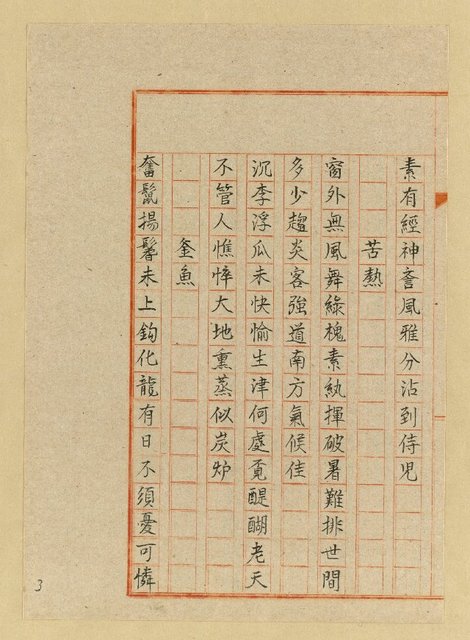 素有經神訾風雅分沾到侍児
苦熱
窗外無風舞綠槐素紈揮破暑難排世間
多少趨炎客強道南方氣候佳
沉李浮瓜未快愉生津何處覔醍醐老天
不管人憔悴大地熏蒸似炭炉
釜魚
奮鬛揚鬐未上鈎化龍有日不須憂可憐
3